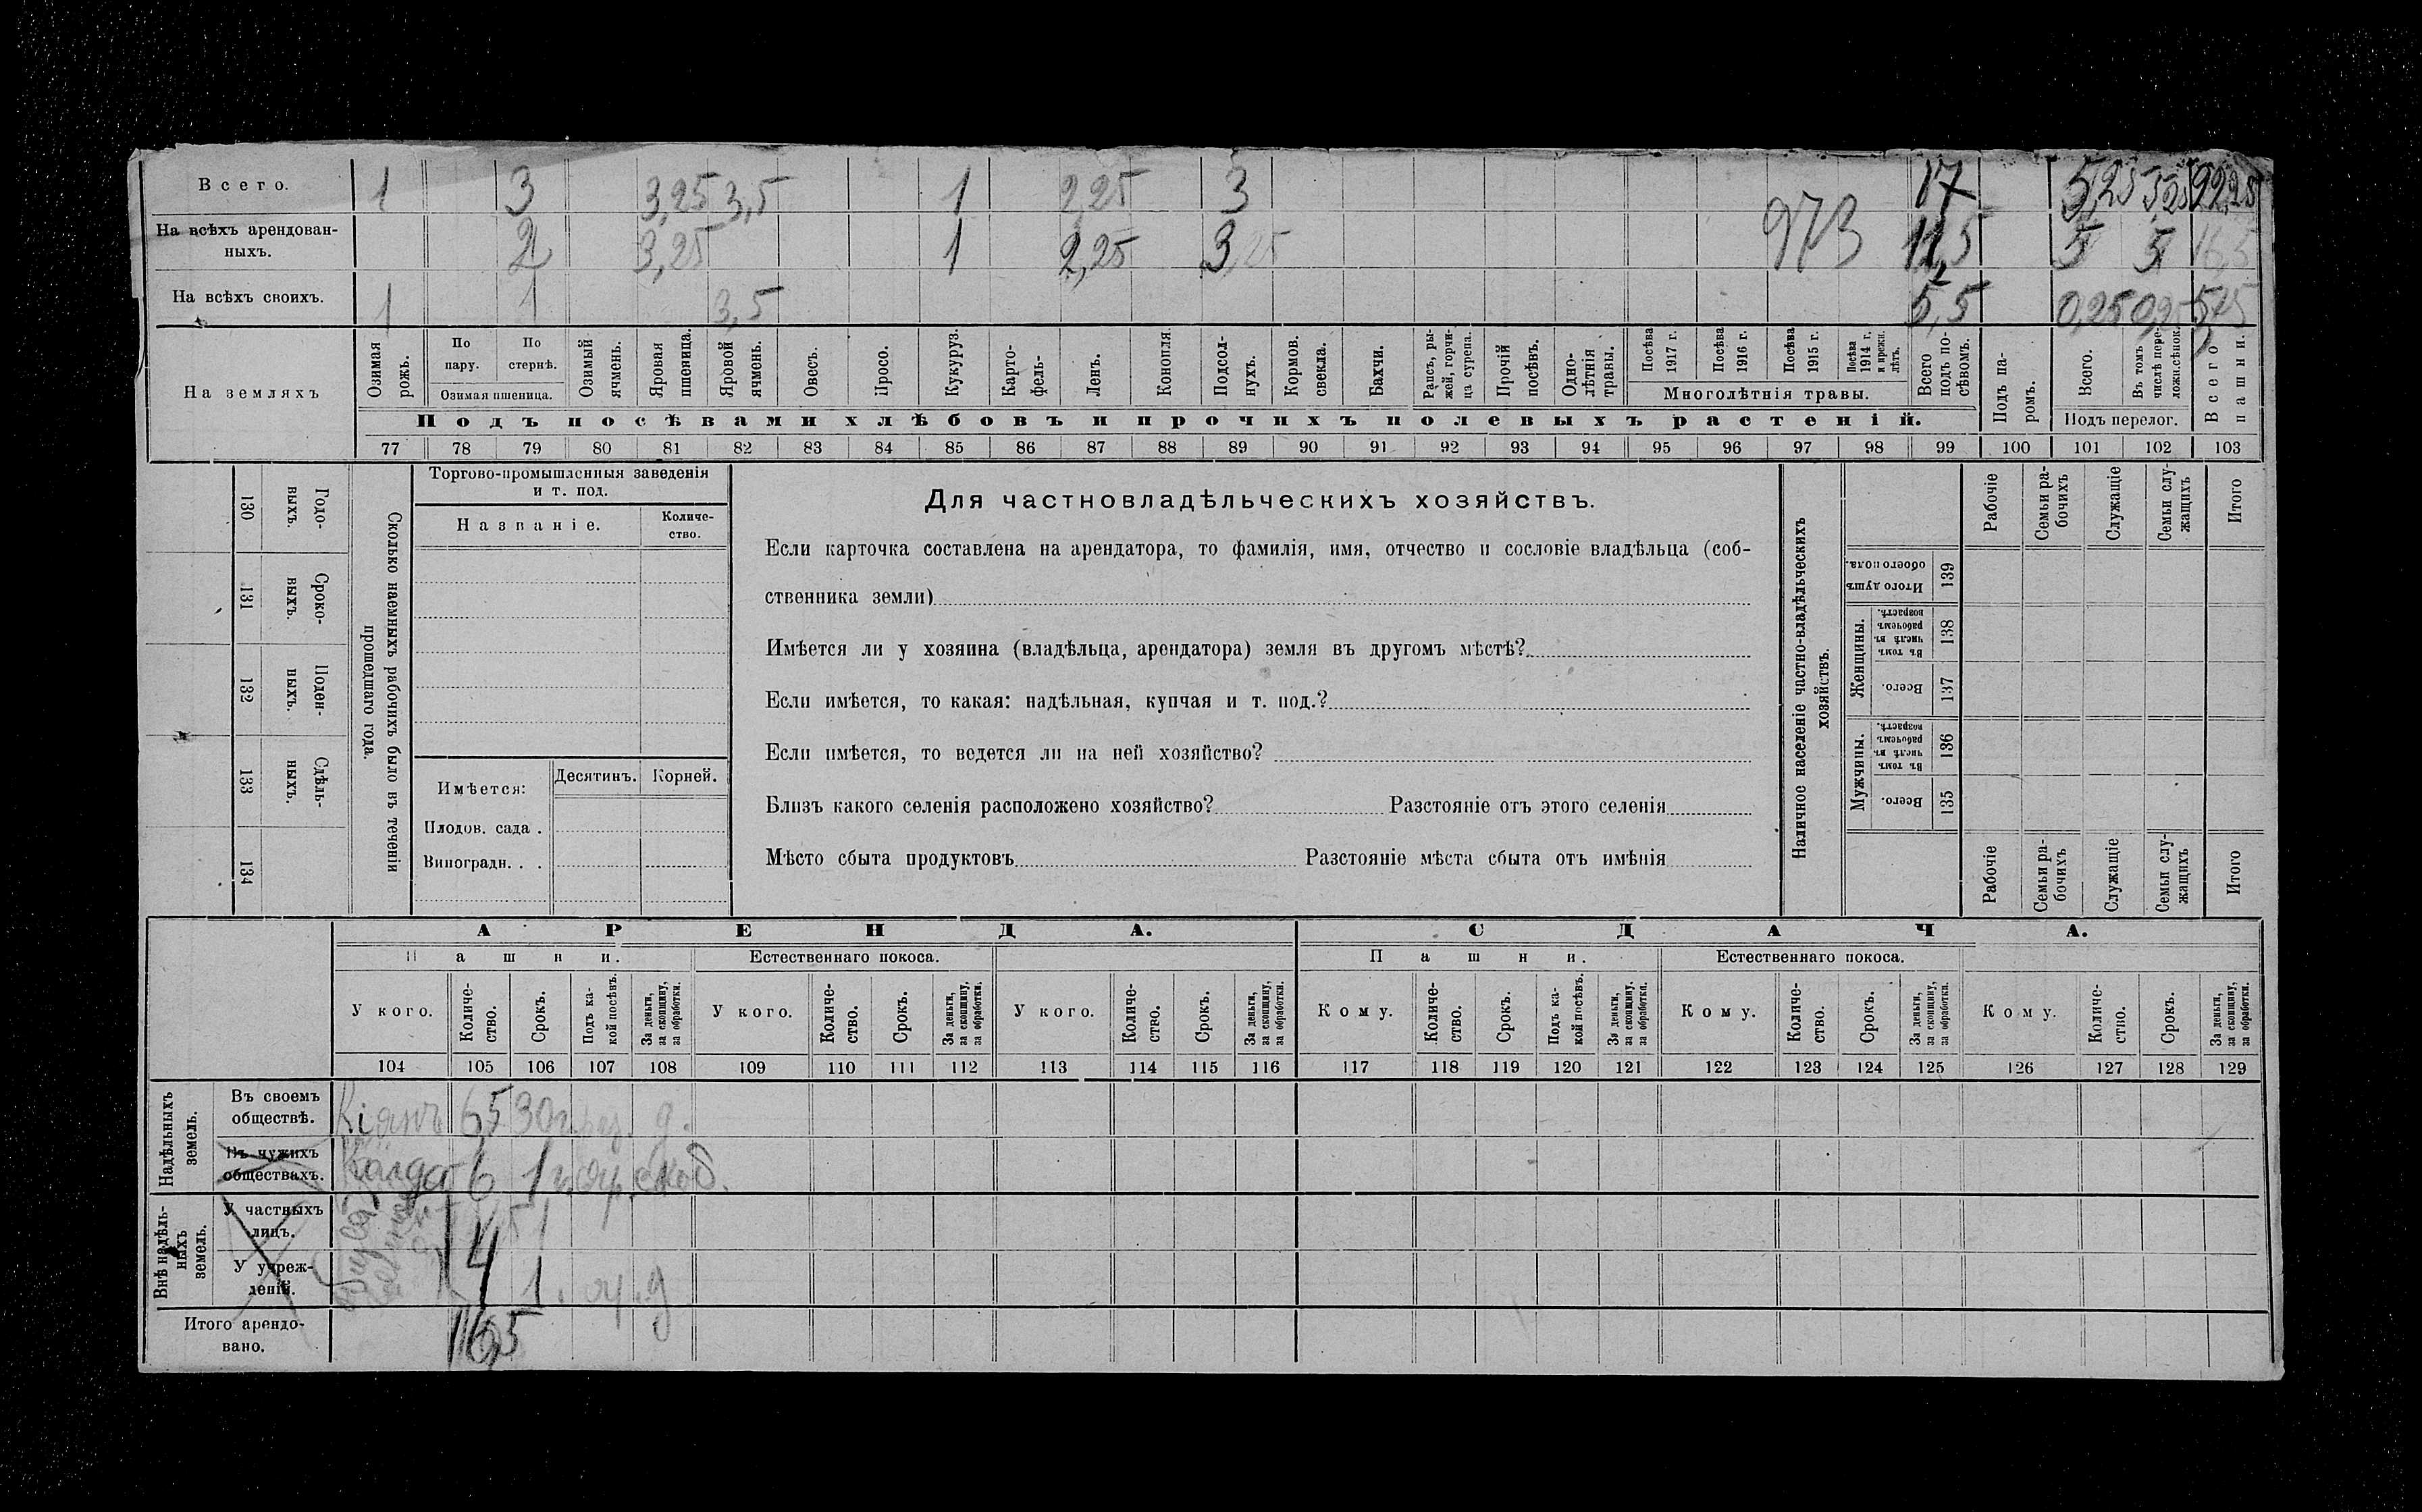 Всего. 1 3 3,25 3,5 1 2,25 3 17 5,25 5,25 22,25
На всѣхъ арендован-
ныхъ. 2 3,25 1 2,25 3,25 973 11,5 5 5 16,5
На всѣхъ своихъ. 1 1 3,5 5,5 0,25 0,25
На земляхъ
Озимая рожь.
По пару.
По стернѣ.
Озимая пшеница.
Озимый ячмень.
Яровая пшеница.
Яровой ячмень.
Овесъ.
Просо.
Кукуруз.
Карто-
фель-
Ленъ.
Конопля.
Подсол-
нухъ.
Кормов.
свекла.
Бахчи.
Рапсъ, ры-
жей, горчи-
ца сурепа.
Прочій посѣвъ.
Одно-
лѣтнія
травы.
Посѣва 1917 г.
Посѣва 1916 г.
Посѣва 1915 г.
Посѣва 1914 г. и прежн. лѣтъ.
Многолѣтнія травы.
Всего подъ по-
сѣвомъ.
Подъ па-
ромъ.
Всего.
Въ томъ числѣ пере-
ложн.сѣнок.
Подъ перелог.
Всего пашни.
Подъ посѣвами хлѣбовъ и прочихъ полевыхъ растеній.
77 78 79 80 81 82 83 84 85 86 87 88 89 90 91 92 93 94 95 96 97 98 99 100 101 102 103
130 Годо-
выхъ.
131 Сроко-
выхъ.
132 Поден-
ныхъ.
133 Сдѣль-
ныхъ.
134
Сколько наемныхъ рабочихъ было въ теченіи
прошедшаго года.
Торгово-промышленныя заведенія
и т. под.
Названіе.
Количе-
ство.
Имѣется: Десятинъ. Корней.
Плодов. сада .
Виноградн. . .
Для частновладѣльческихъ хозяйствъ.
Если карточка составлена на арендатора, то фамилія, имя, отчество и сословіе владѣльца (соб-
ственника земли)
Имѣется ли у хозяина (владѣльца, арендатора) земля въ другомъ мѣстѣ?
Если имѣется, то какая: надѣльная, купчая и т. под.?
Если имѣется, то ведется ли на ней хозяйство?
Близъ какого селенія расположено хозяйство? Разстояніе отъ этого селенія
Мѣсто сбыта продуктовъ Разстояніе мѣста сбыта отъ имѣнія
Наличное населеніе частно-владѣльческихъ
хозяйствъ.
Рабочіе
Семьи ра-
бочихъ
Служащіе
Семьи слу-
жащихъ
Итого
Итого душъ обоего пола. 139
Женщины.
Въ томъ числѣ въ рабочемъ возрастѣ. 138
Всего. 137
Мужчины.
Въ томъ числѣ въ рабочемъ возрастѣ. 136
Всего. 135
Рабочіе
Семьи ра-
бочихъ
Служащіе
Семьи слу-
жащихъ
Итого
АРЕНДА. СДАЧА.
Пашни. Естественнаго покоса. Пашни. Естественнаго покоса.
У кого. Количе-
ство. Срокъ. Подъ ка-
кой посѣвъ. За деньги, за скопщину, за обработки.
У кого. Количе-
ство. Срокъ. За деньги, за скопщину, за обработки.
У кого. Количе-
ство. Срокъ. За деньги, за скопщину, за обработки.
Кому. Количе-
ство. Срокъ. Подъ ка-
кой посѣвъ. За деньги, за скопщину, за обработки.
Кому. Количе-
ство. Срокъ. За деньги, за скопщину, за обработки.
Кому. Количе-
ство. Срокъ. За деньги, за скопщину, за обработки.
104 105 106 107 108 109 110 111 112 113 114 115 116 117 118 119 120 121 122 123 124 125 126 127 128 129
Надѣльныхъ земель.
Въ своемъ
обществѣ. 6,5 д.
Въ чужихъ
обществахъ. 6 1
Внѣ надѣль-
ныхъ
земель.
У частныхъ
лицъ.
У учреж-
деній. 4 1 д
Итого арендо-
вано. 16,5